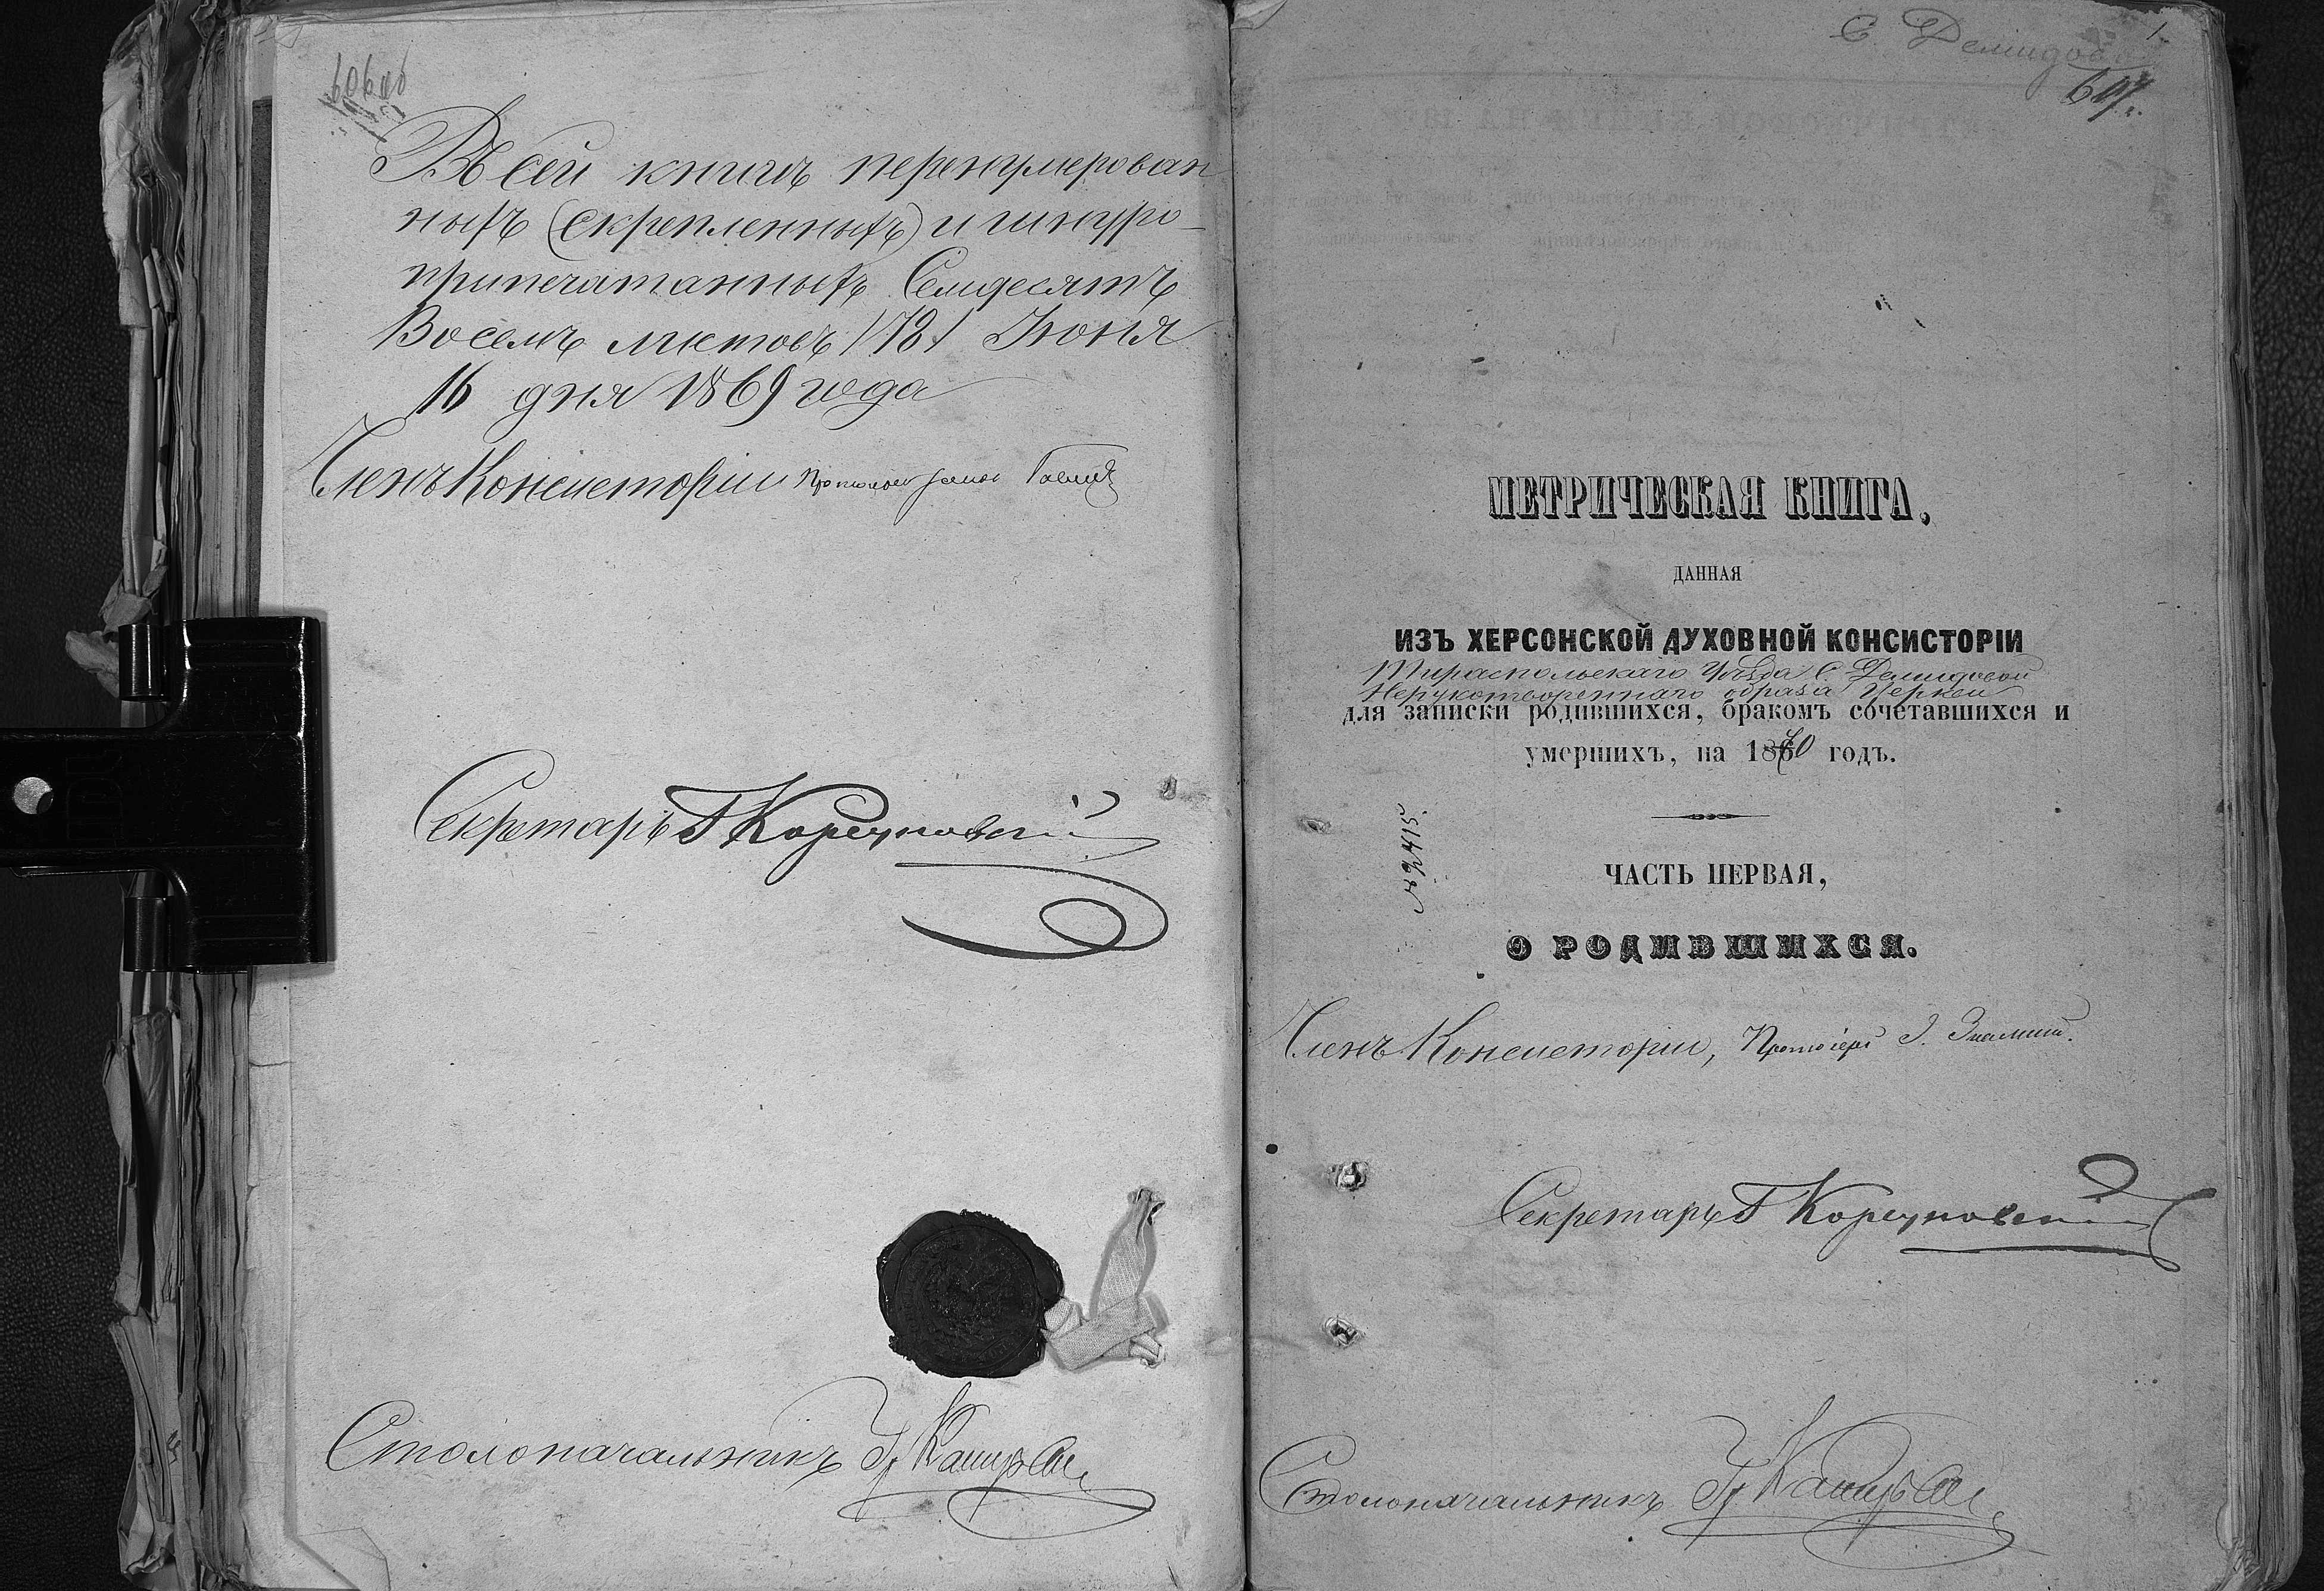 606об
Въ сей книгѣ перенумерован
ныхъ (скрепленныхъ) и шнуро-
припечатанныхъ Семдесятъ
Восемъ листовъ /78/ Июня
16 дня 1869 года
Членъ Консисторіи
Секретарь Г Корсуновскій
Столоначальникъ Гр
С. Демидово
1
607.
МЕТРИЧЕСКАЯ КНИГА,
ДАННАЯ
ИЗЪ ХЕРСОНСКОЙ ДУХОВНОЙ КОНСИСТОРІИ
Тираспольскаго Уѣзда С. Демидовой
Нерукотвореннаго образа Церкви
для записки родившихся, бракомъ сочетавшихся и
умершихъ, на 1870 годъ.
№ 92415.
ЧАСТЬ ПЕРВАЯ,
О РОДИВШИХСЯ.
Членъ Консисторіи, Протоіерей
Секретарь Г Корсуновскій
Столоначальникъ Гр